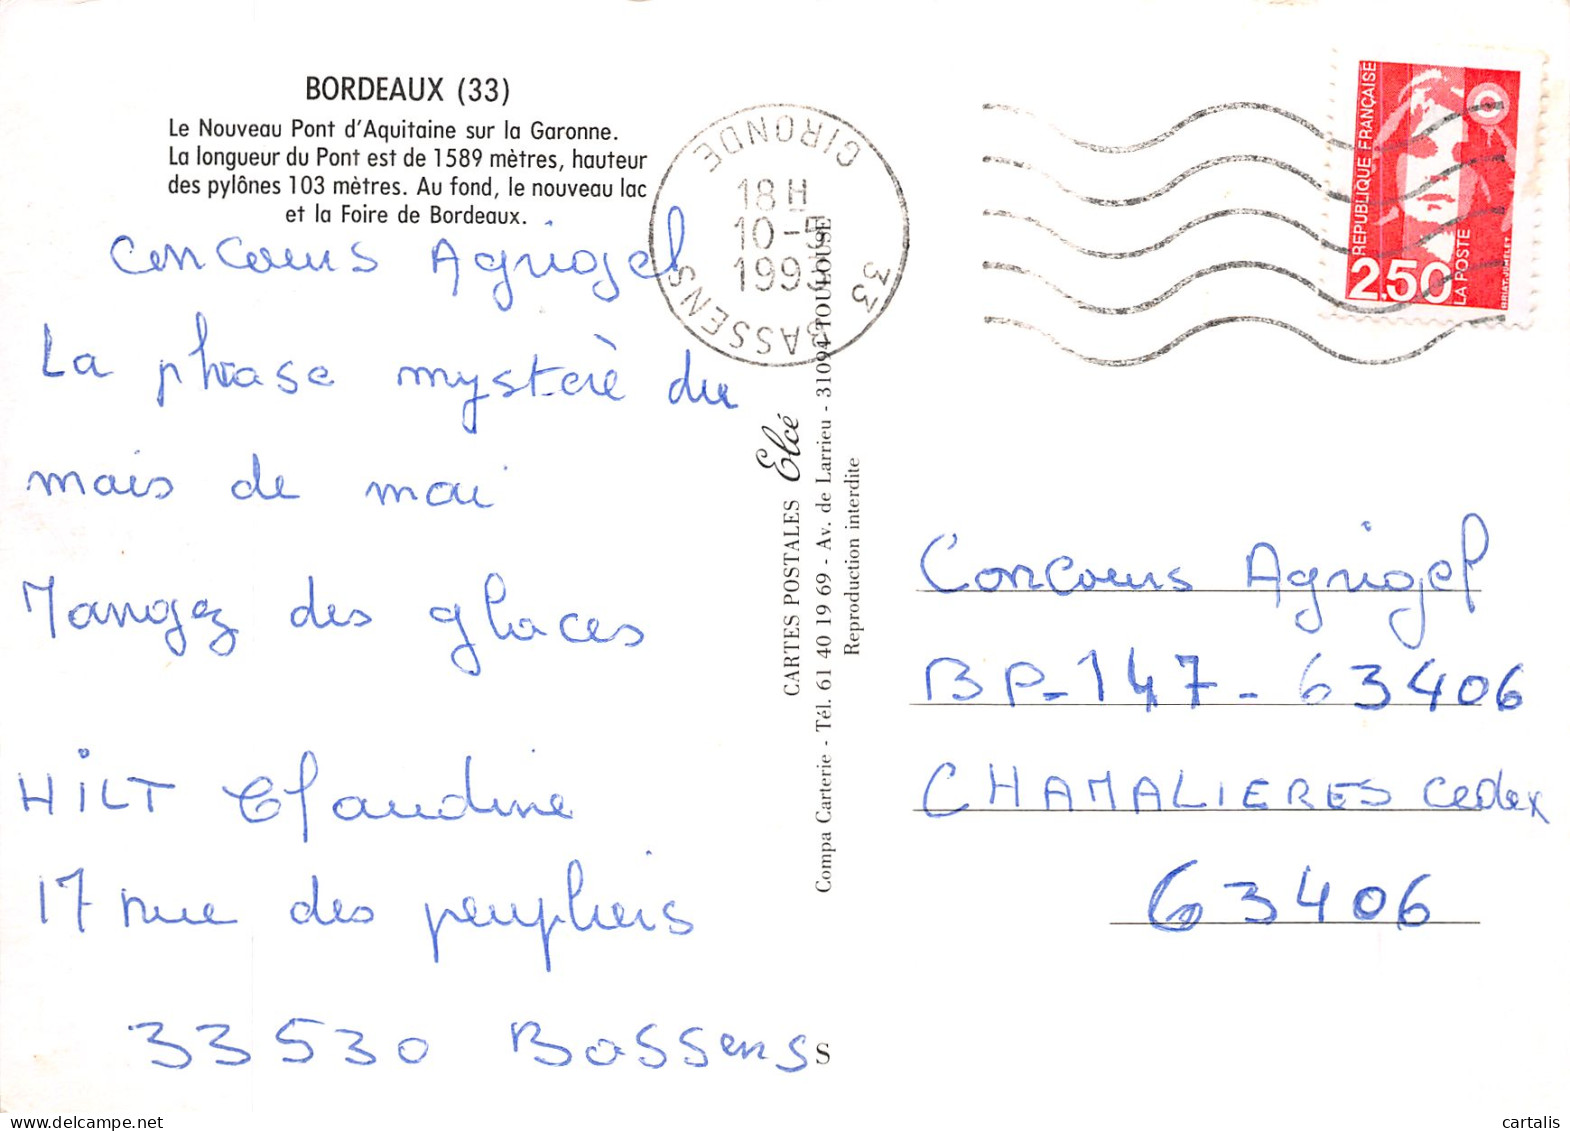 BORDEAUX (33)
Le Nouveau Pont d'Aquitaine sur la Garonne.
La longueur du Pont est de 1589 mètres, hauteur
des pylônes 103 mètres. Au fond, le nouveau lac
et la Foire de Bordeaux.
Concours Agrigel
La phrase mystère du
mais de mai
Mangez des glaces
HILT Claudine
17 rue des peupliers
33530 Bassens
33 BASSENS
GIRONDE
18 H
10-5
1993
CARTES POSTALES Elcé
Compa Carterie - Tél. 61 40 19 69 - Av. de Larrieu - 31094 TOULOUSE
Reproduction interdite
S
REPUBLIQUE FRANÇAISE
2,50
LA POSTE
BRIAT-JUMELET
Concours Agrigel
BP-147-63406
CHAMALIERES Cedex
63406
cartalis